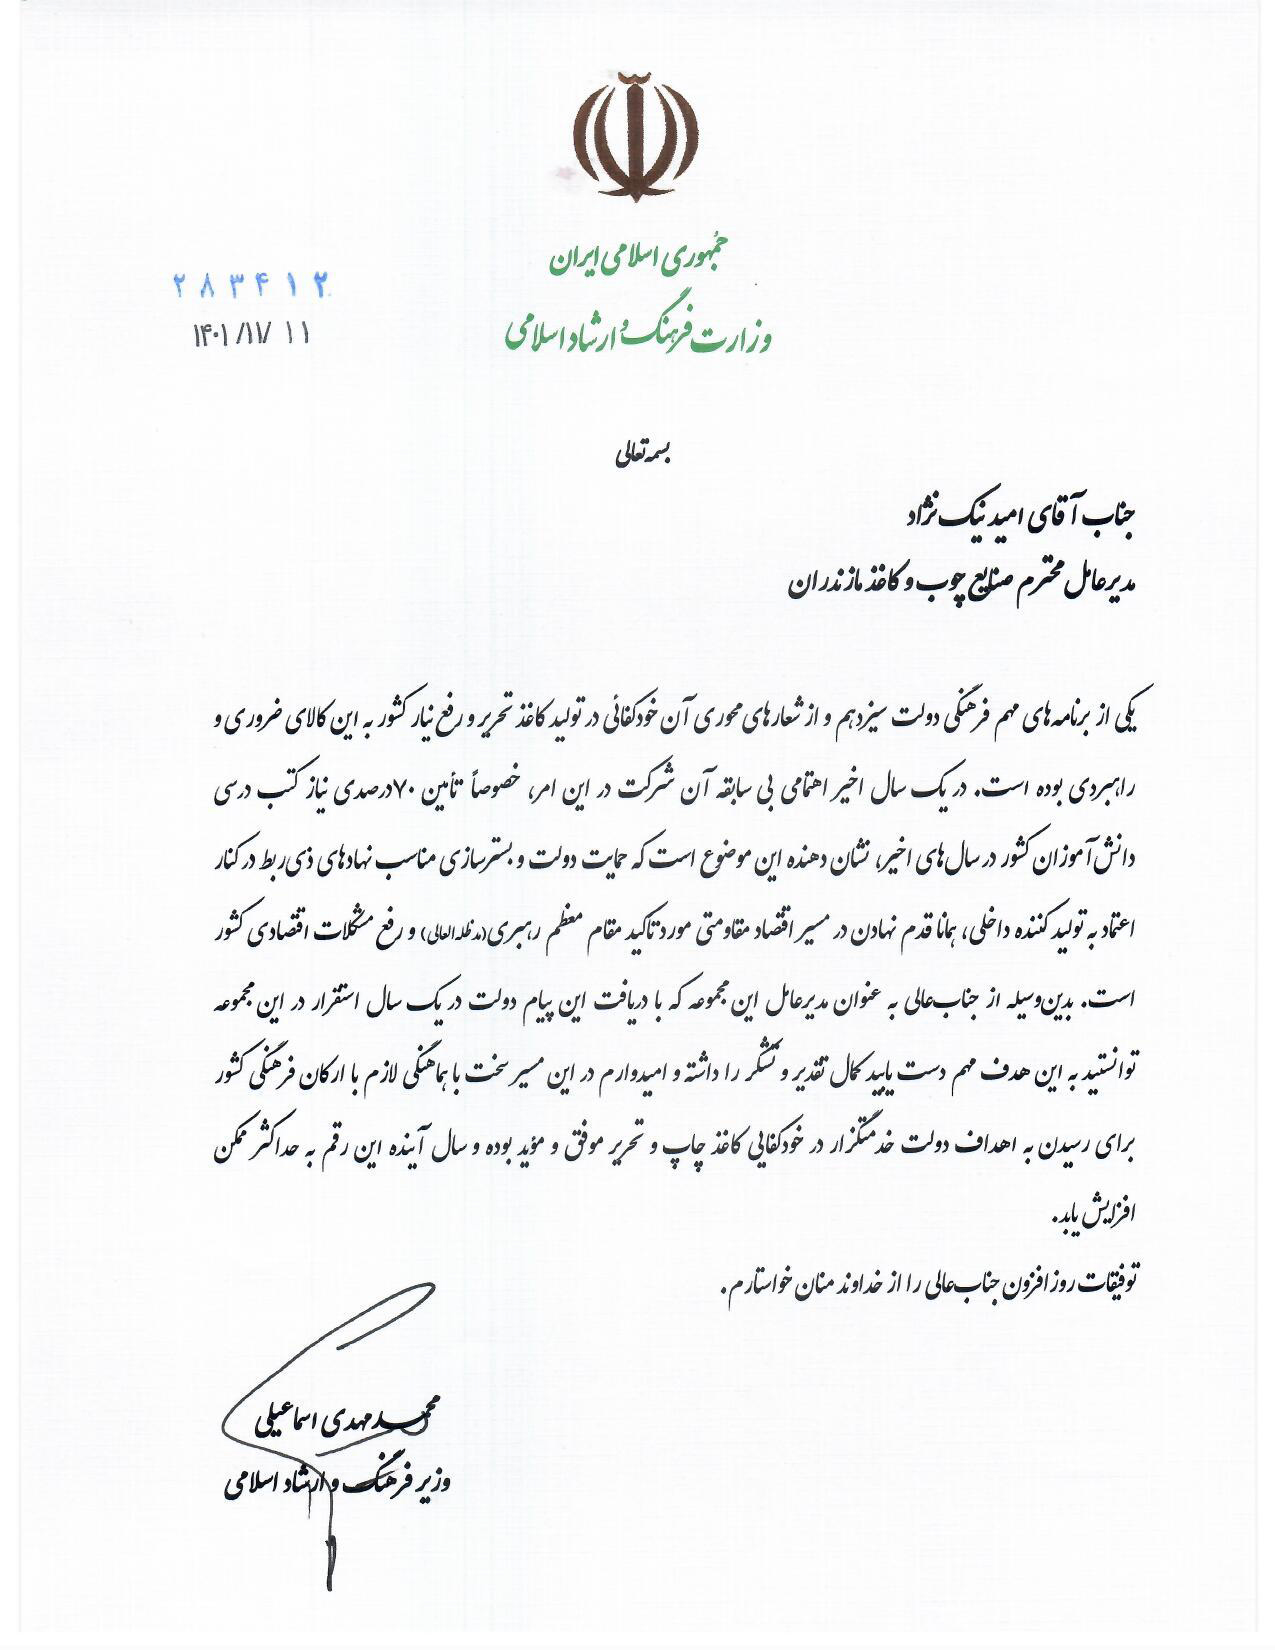 جمهوری اسلامی ایران
وزارت فرهنگ و ارشاد اسلامی
۲۸۳۴۱۲
۱۴۰۱/۱۱/۱۱
بسمه تعالی
جناب آقای امید نیک نژاد
مدیرعامل محترم صنایع چوب و کاغذ مازندران
یکی از برنامه‌های مهم فرهنگی دولت سیزدهم و از شعارهای محوری آن خودکفائی در تولید کاغذ تحریر و رفع نیار کشور به این کالای ضروری و
راهبردی بوده است. در یک سال اخیر اهتمامی بی سابقه آن شرکت در این امر، خصوصاً تأمین ۷۰درصدی نیاز کتب درسی
دانش‌آموزان کشور در سال‌های اخیر، نشان دهنده این موضوع است که حمایت دولت و بسترسازی مناسب نهادهای ذی‌ربط در کنار
اعتماد به تولید کننده داخلی، همانا قدم نهادن در مسیر اقتصاد مقاومتی مورد تاکید مقام معظم رهبری(مدظله‌العالی) و رفع مشکلات اقتصادی کشور
است. بدین‌وسیله از جناب‌عالی به عنوان مدیرعامل این مجموعه که با دریافت این پیام دولت در یک سال استقرار در این مجموعه
توانستید به این هدف مهم دست یابید کمال تقدیر و تشکر را داشته و امیدوارم در این مسیر سخت با هماهنگی لازم با ارکان فرهنگی کشور
برای رسیدن به اهداف دولت خدمتگزار در خودکفایی کاغذ چاپ و تحریر موفق و مؤید بوده و سال آینده این رقم به حداکثر ممکن
افزایش یابد.
توفیقات روز افزون جناب‌عالی را از خداوند منان خواستارم.
محمد مهدی اسماعیلی
وزیر فرهنگ و ارشاد اسلامی